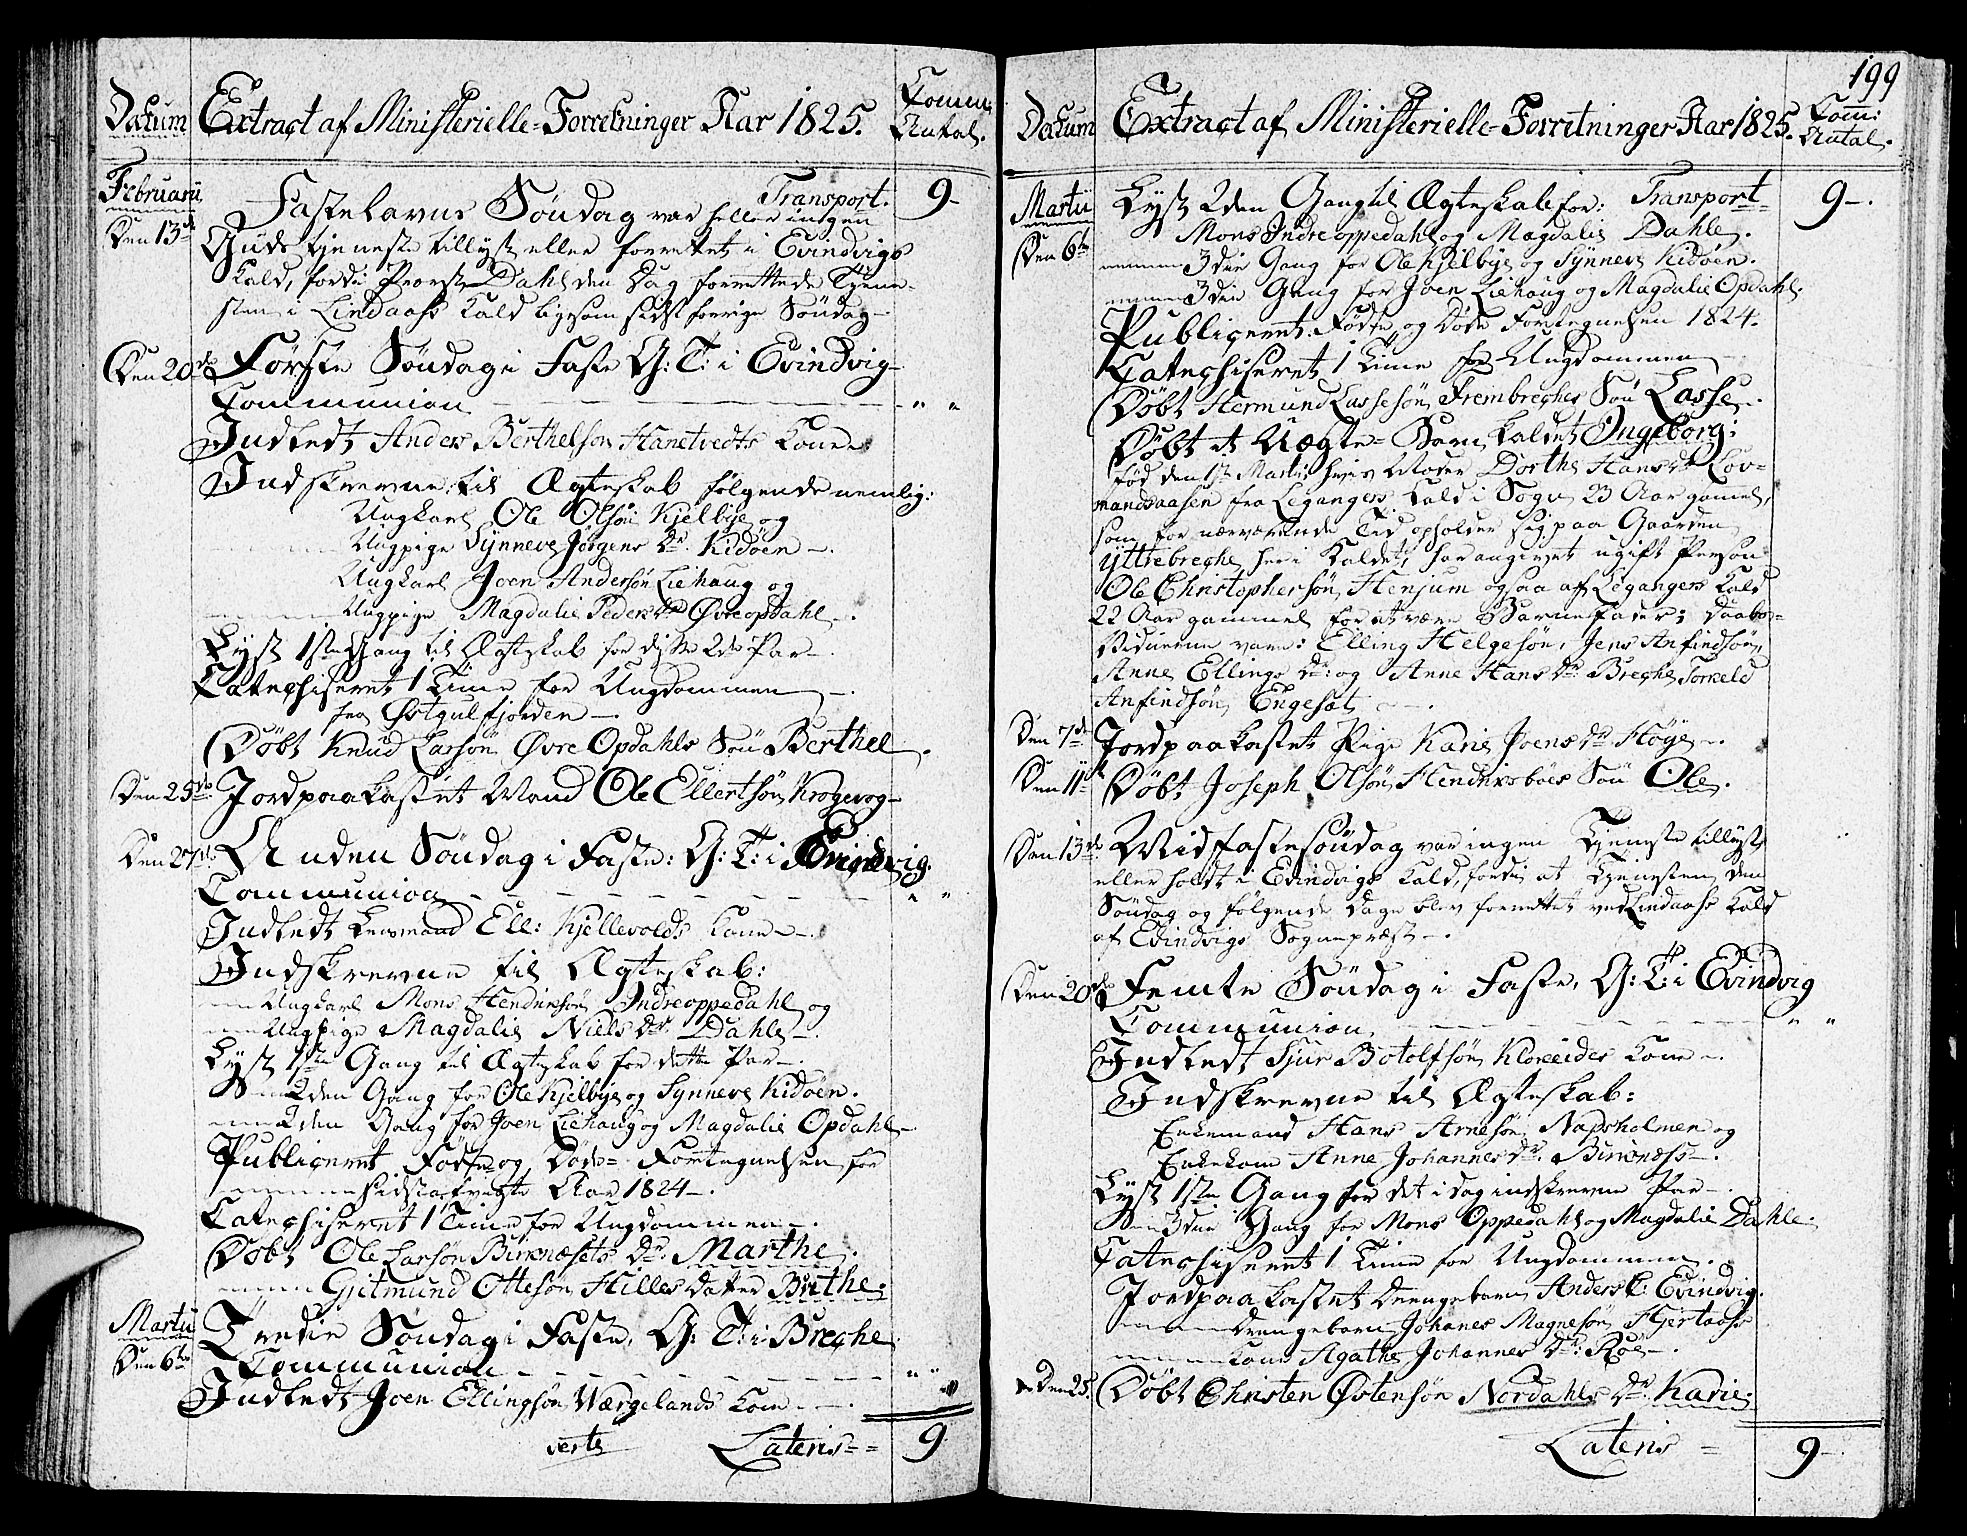 Datum
Extract af Ministerielle-Forretninger Aar 1825.
Comm:
Antal.
Februarii
Transport.
9-
Den 13de
Fastelavns Søndag var heller ingen
Guds tjeneste tillyst eller forrettet i Evindvigs
Kald, fordi Provst Dahl den Dag forrettede Tjene-
sten i Lindaass Kald ligesom sidst forrige Søndag-
Den 20de
Første Søndag i Faste G: T: i Evindvig-
Communion " "
Indledt Anders Berthelsøn Hanetvedts Kone
Indskrevne til Ægteskab følgende nemlig:
Ungkarl Ole Olsøn Kjelbye og
Ungpige Synneve Jørgens Dr. Kidøen-.
Ungkarl Joen Andersøn Liehaug og
Ungpige Magdalie Peders Dr Øvreopdahl-.
Lyst 1ste Gang til Ægteskab for disse 2de Par-.
Catechiseret 1 Time for Ungdommen-.
fra Østgulfjorden-.
Døbt Knud Larsøn Øvre Opdahls Søn Berthel.
Den 25de
Jordpaakastet Mand Ole Ellertsøn Krogevog-
Den 27de
Anden Søndag i Faste: G: T: i Evindvig.
Communion " "
Indledt Lensmand Ell: Kjellevolds Kone-.
Indskrevne til Ægteskab:
Ungkarl Mons Hendriksøn Indreoppedahl og
Ungpige Magdalie Niels Dr. Dahle-.
Lyst 1ste Gang til Ægteskab for dette Par-.
2den Gang for Ole Kjelbye og Synneve Kidøen.
2den Gang for Joen Liehaug og Magdalie Opdahl-
Publiceret Føds- og Døds- Fortegnelsen for
sidstafvigte Aar 1824-.
Catechiseret 1 Time for Ungdommen-.
Døbt Ole Larsøn Birknæsets Dr. Marthe.
Gjetmund Ottesøn Hilles Datter Birthe.
Martii
Den 6te
Tredie Søndag i Faste, G: T: i Breche
Communion " "
Indledt Joen Ellingsøn Værgelands Kone-.
verte
Lateris--
9.
199
Datum
Extract af Ministerielle-Forretninger Aar 1825.
Com:
Antal.
Martii
Den 6te
Lyst 2den Gang til Ægteskab for: Transport
9-.
Mons Indreoppedahl og Magdalie Dahle.
3die Gang for Ole Kjelbye og Synneve Kidøen.
3die Gang for Joen Liehaug og Magdalie Opdahl.
Publiceret Føds- og Døds Fortegnelsen 1824.
Catechiseret 1 Time for Ungdommen
Døbt Hermund Lassesøn Frembreches Søn Lasse.
Døbt et Uægte-Barn kaldet Ingeborg:
fød den 1ste Martii, hvis Moder Dorthe Hans Dr Lov-
mandsaasen fra Legangers Kald i Sogn 23 Aar gammel,
som for nærværende Tid opholder sig paa Gaarden
Yttrebreche her i Kaldet, har angivet ugift Person
Ole Christophersøn Henjum ogsaa af Legangers Kald
22 Aar gammel for at være Barnefader; Daabs-
Vidnerne vare: Elling Helgesøn, Jens Anfindsøn,
Anne Ellings Dr: og Anne Hans Dr: Breche Torkeld
Anfindsøn Engesæt-.
Den 7de
Jordpaakastet Pige Karie Joens Dr Høye-.
Den 11te
Døbt Joseph Olsøn Hendriksbøes Søn Ole.
Den 13de
Midfastesøndag var ingen Tjeneste tillyst
eller holdt i Evindvigs Kald, fordi at Tjenesten den
Søndag og følgende Dage blev forrettet ved Lindaass Kald
af Evindvigs Sognepræst-.
Den 20de
Femte Søndag i Faste, G: T: i Evindvig
Communion " "
Indledt Sjur Botolfsøn Kloveides Kone-.
Indskrevne til Ægteskab:
Enkemand Hans Arnesøn Napsholmen og
Enkekone Anne Johannes Dr. Birknæss-.
Lyst 1ste Gang for det i dag indskrevne Par-.
3die Gang for Mons Oppedahl og Magdalie Dahle.
Catechiseret 1 Time for Ungdommen-.
Jordpaakastet Drengebarn Anders Evindvig.
Drengebarn Johanes Magnesøn Hjertaas
Kone Agathe Johannes Dr: Røe-.
Den 25.
Døbt Christen Østensøn Nordahls Dr. Karie.
Lateris =
9-.